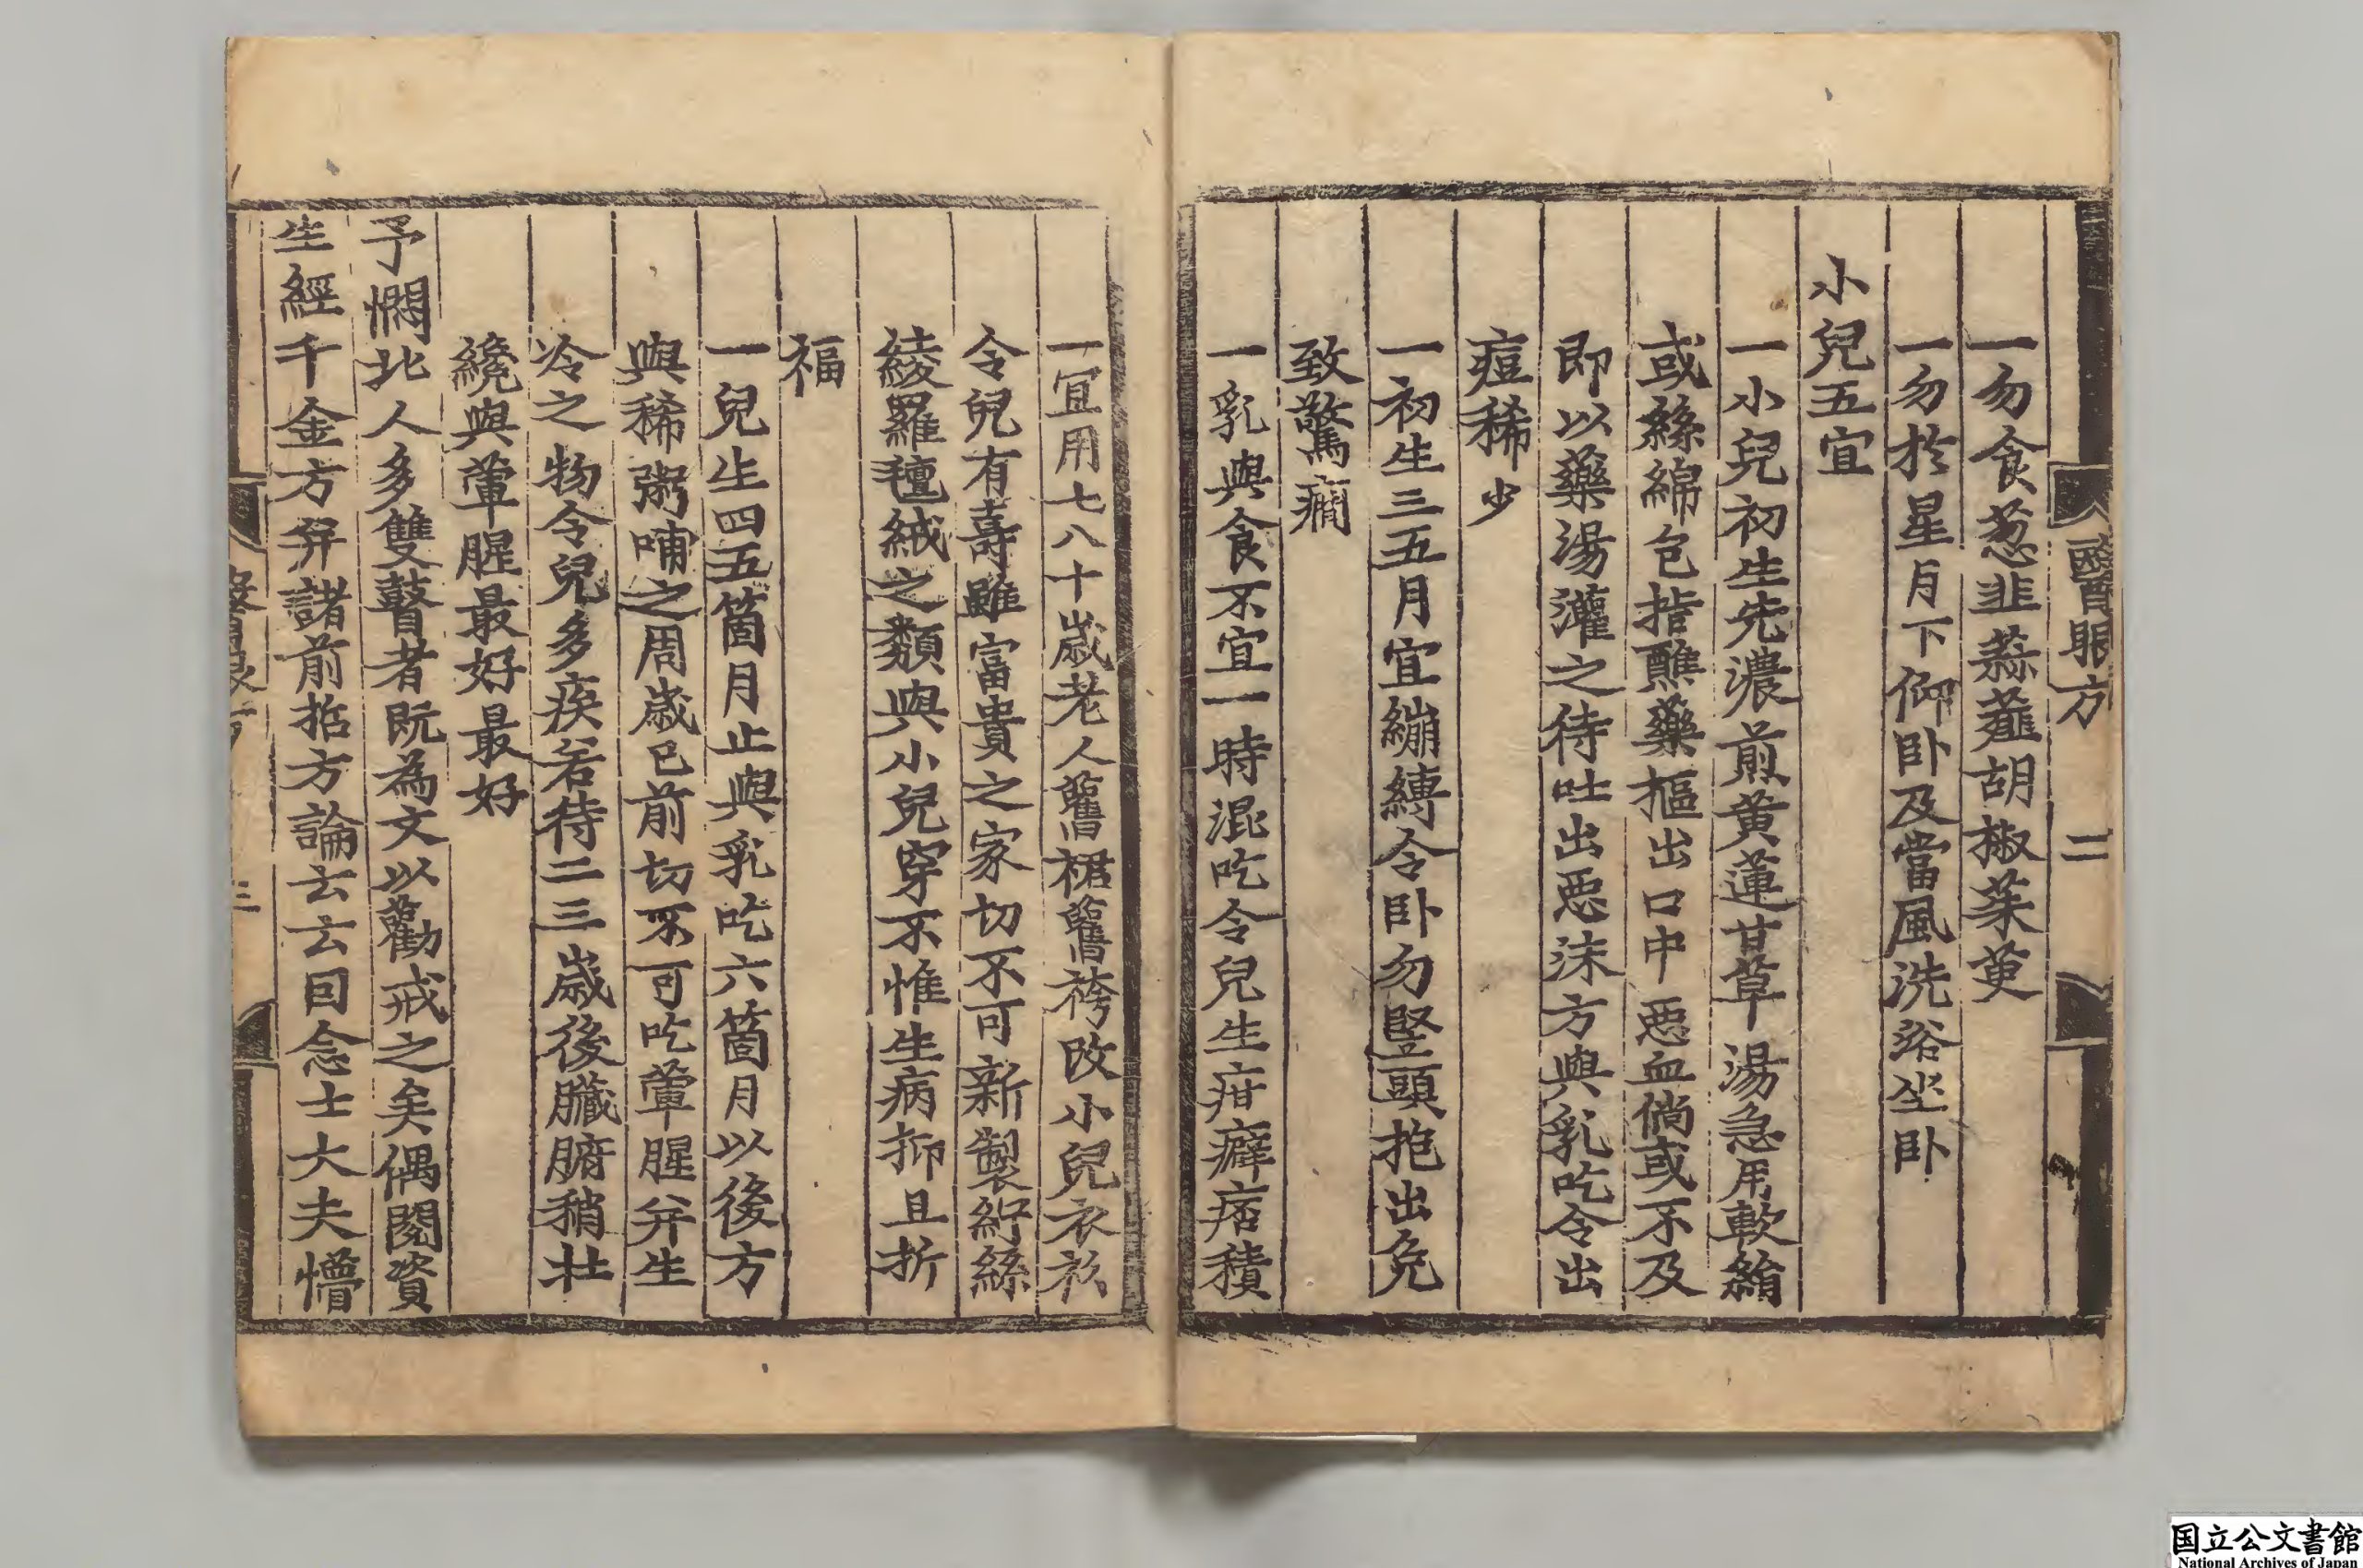 醫眼方 二
一勿食葱韭蒜薤胡椒茱萸
一勿於星月下仰卧及當風洗浴坐卧
小兒五宜
一小兒初生先濃煎黄蓮甘草湯急用軟絹
或絲綿包指蘸藥摳出口中惡血倘或不及
即以藥湯灌之待吐出惡沫方與乳吃令出
痘稀少
一初生三五月宜繃縛令卧勿竪頭抱出免
致驚癇
一乳與食不宜一時混吃令兒生疳癖痞積
一宜用七八十歲老人舊裙舊袴改小兒衣衫
令兒有壽雖富貴之家切不可新製紵絲
綾羅氊絨之類與小兒穿不惟生病抑且折
福
一兒生四五箇月止與乳吃六箇月以後方
與稀粥哺之周歲已前切不可吃葷腥并生
冷之物令兒多疾若待二三歲後臟腑稍壮
纔與葷腥最好最好
予憫北人多雙瞽者既為文以勸戒之矣偶閱資
生經千金方并諸前哲方論云云因念士大夫懵
三
国立公文書館
National Archives of Japan